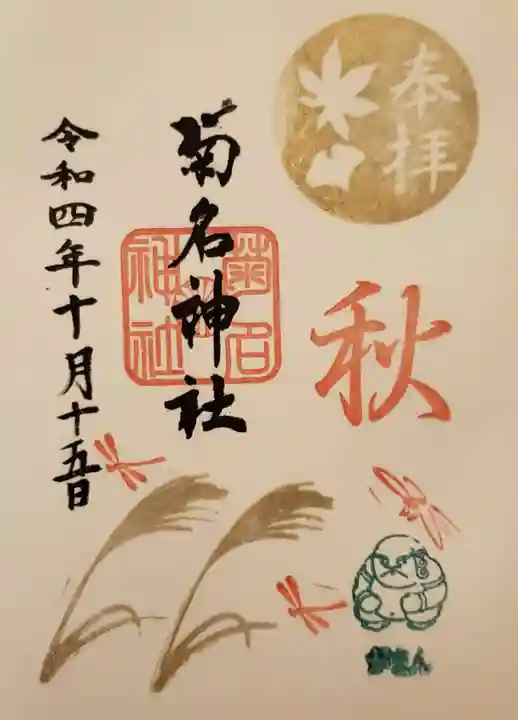 奉拝
秋
菊名神社
菊名神社
令和四年十月十五日
がまん